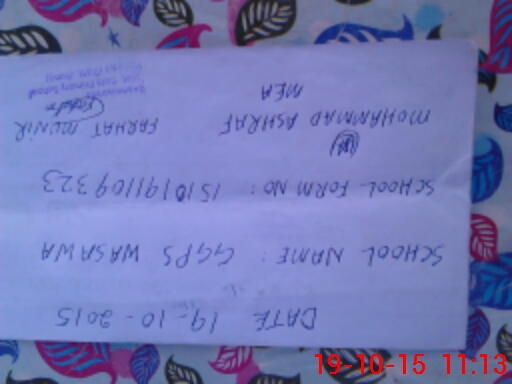 DATE 19-10-2015
SCHOOL NAME: GGPS WASAWA
SCHOOL FORM NO: 1510191109323
MOHAMMAD ASHRAF FARHAT MUNIR
MEA
19-10-15 11:13